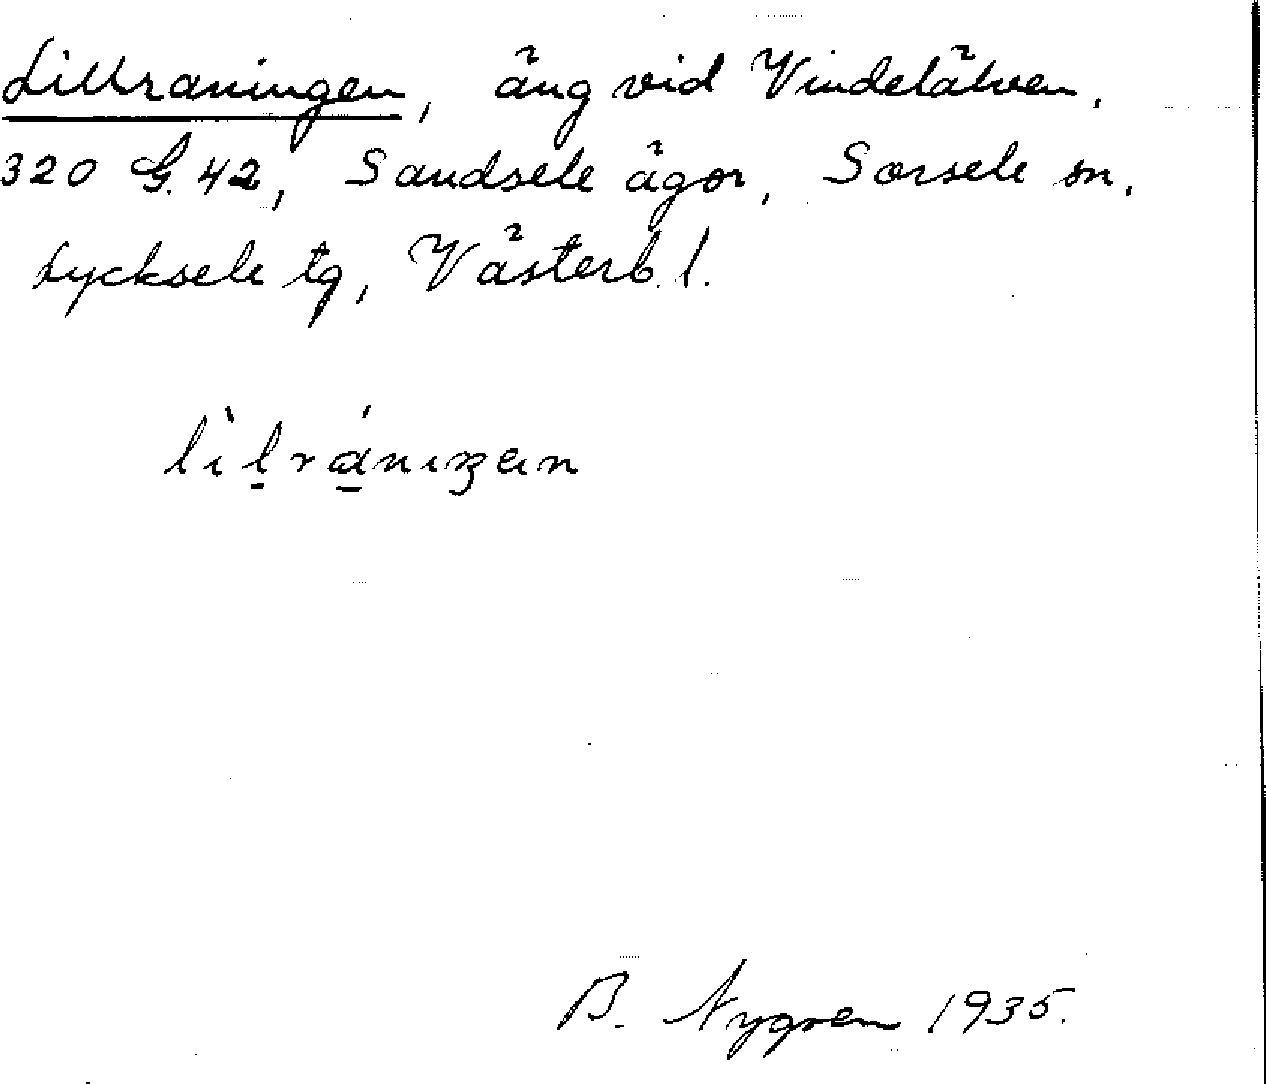 Lillraningen, äng vid Vindelälven.
320 G. 42, Sandsele ägor, Sorsele sn.
Lycksele tg, Västerb. l.
B. Nygren 1935.